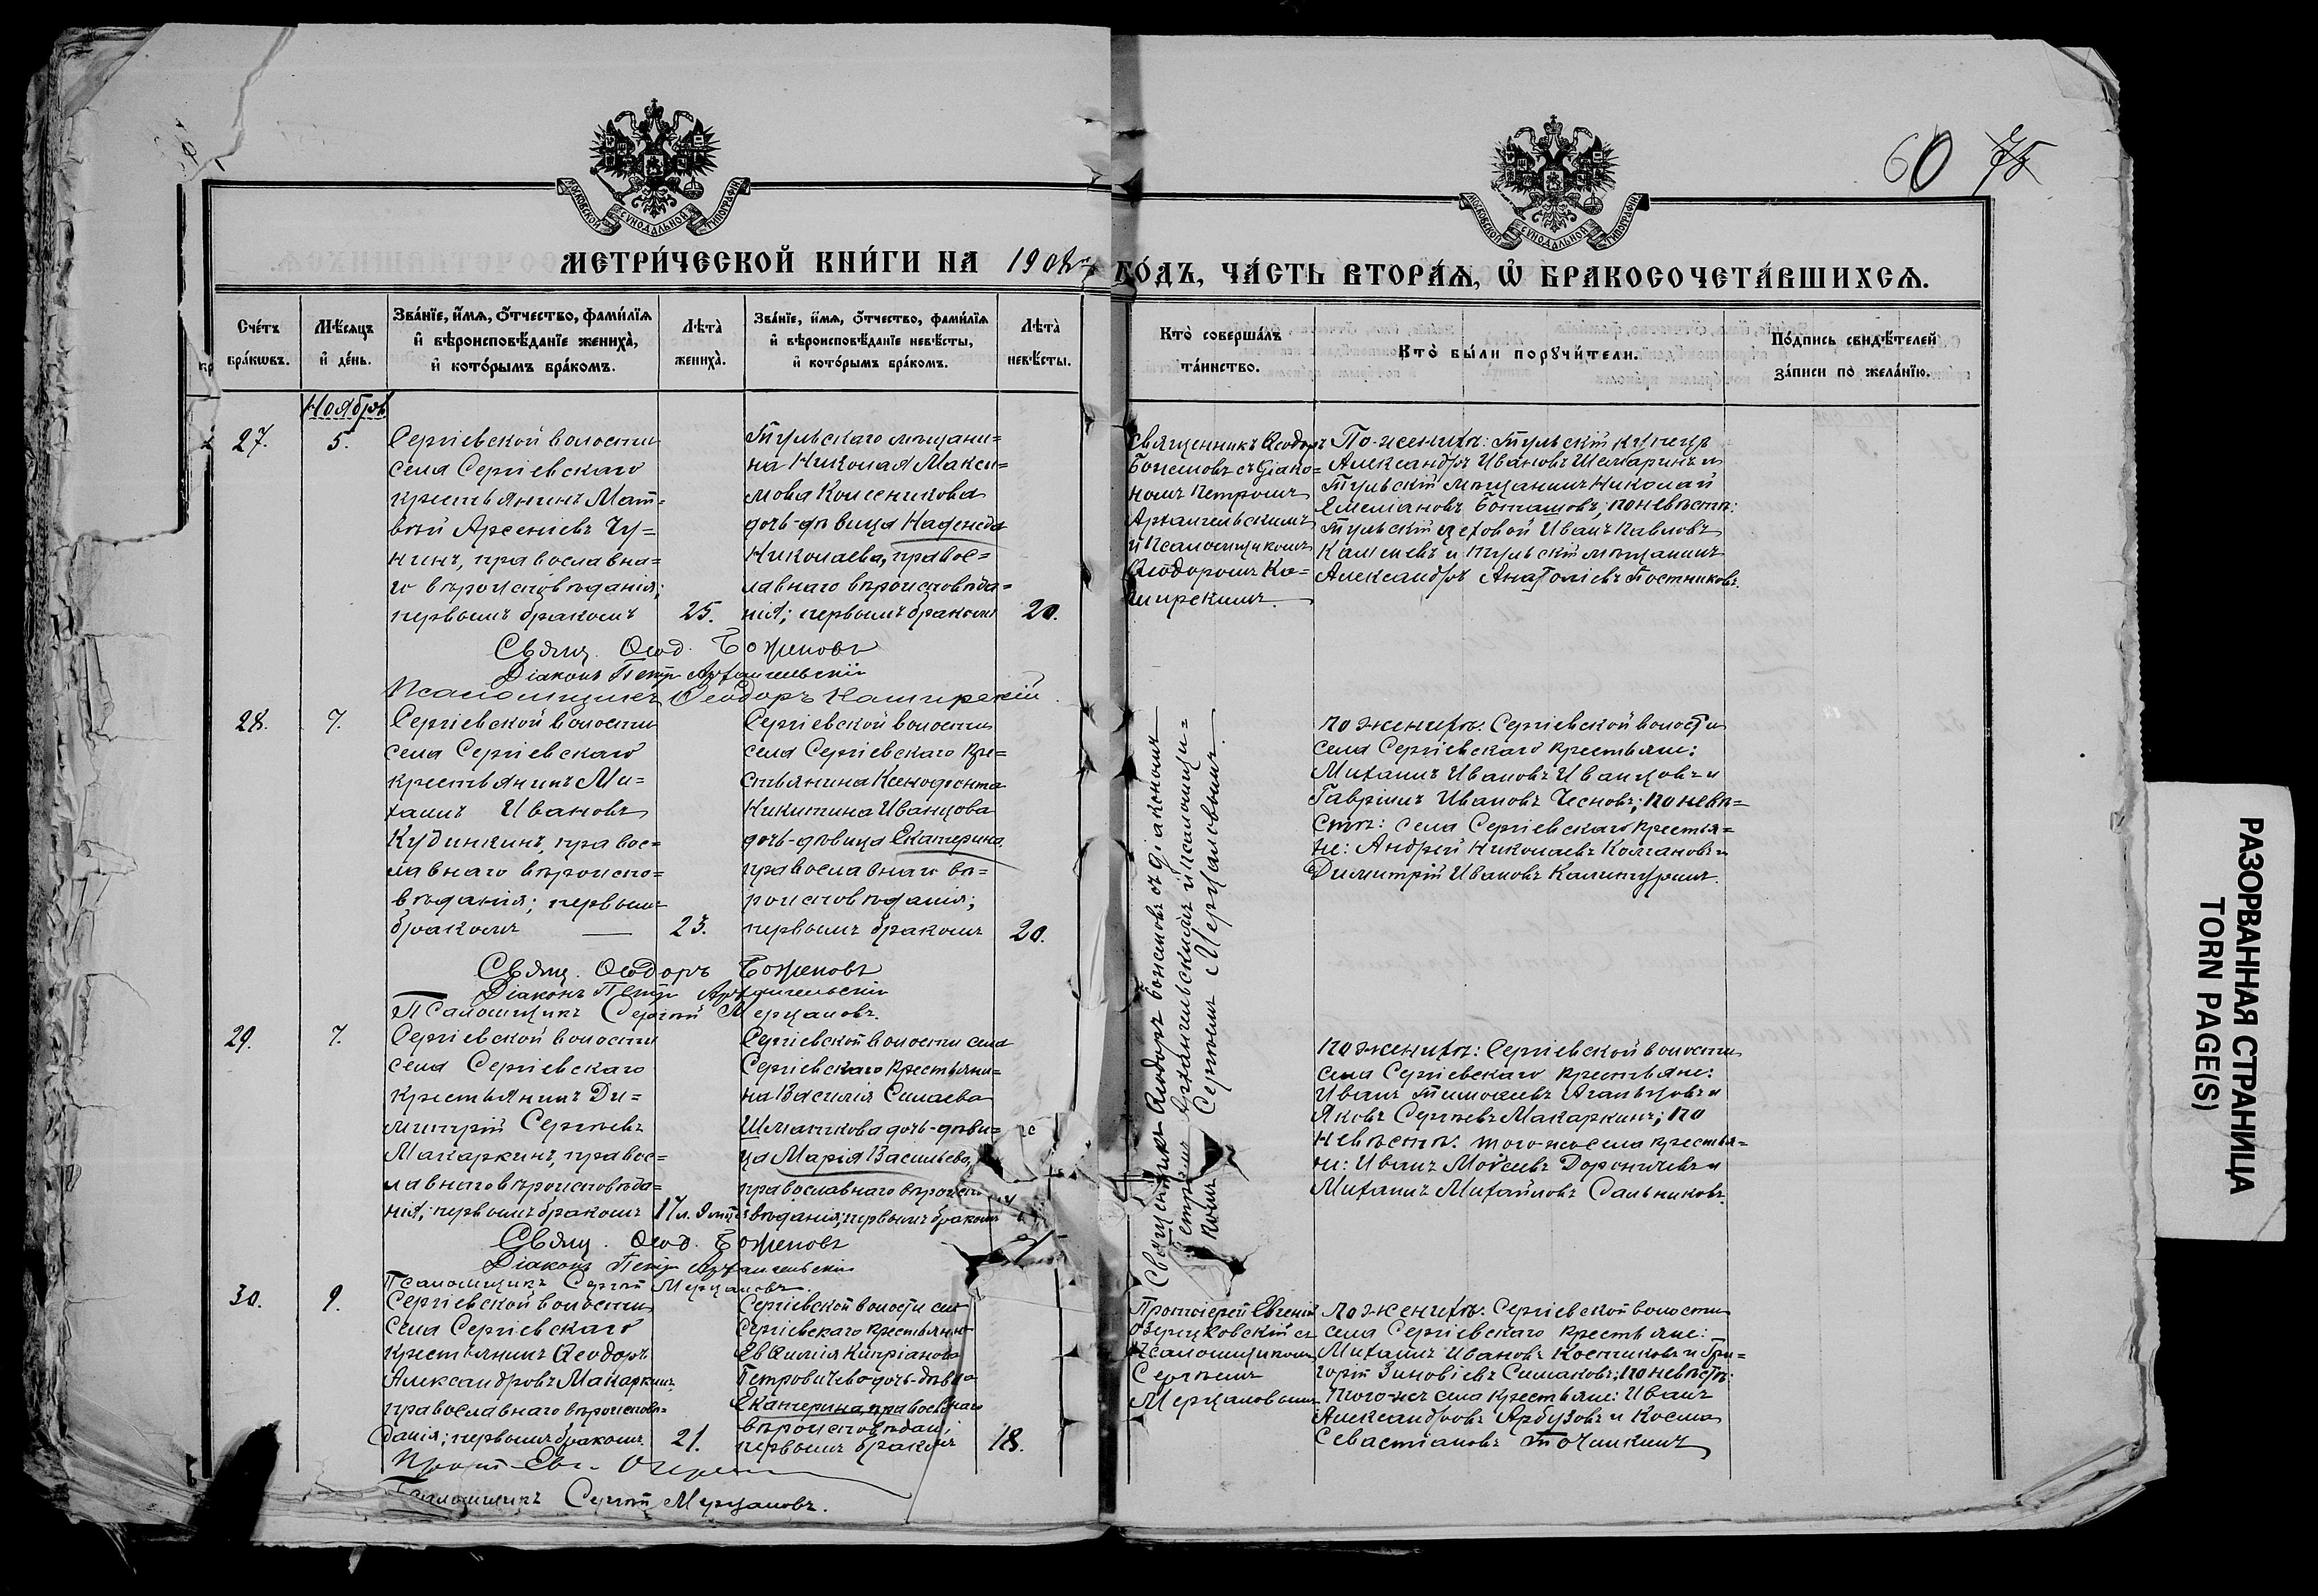 60 75
МОСКОВСКОЙ СѴНОДАЛЬНОЙ ТИПОГРАФІИ
МОСКОВСКОЙ СѴНОДАЛЬНОЙ ТИПОГРАФІИ
МЕТРИ́ЧЕСКОЙ КНИ́ГИ НА 1908 ГО́ДЪ, ЧА́СТЬ ВТОРА́Ѧ, Ѡ҆ БРАКОСОЧЕТА́ВШИХСѦ.
Сче́тъ бра́кѡвъ.
Мѣ́сѧцъ и҆ де́нь.
Зва́нїе, и҆́мѧ, ѻ҆́тчество, фами́лїѧ
и҆ вѣроисповѣ́данїе жениха̀,
и҆ кото́рымъ бра́комъ.
Лѣ́та̀ жениха̀.
Зва́нїе, и҆́мѧ, ѻ҆́тчество, фами́лїѧ
и҆ вѣроисповѣ́данїе невѣ́сты,
и҆ кото́рымъ бра́комъ.
Лѣ́та̀ невѣ́сты.
Кто̀ соверша́лъ та́инство.
Кто̀ бы́ли порꙋчи́тели.
По́дпись свидѣ́телей
за́писи по жела́нїю.
Ноябрь
27.
5.
Сергіевской волости
села Сергіевскаго
крестьянинъ Мат=
вѣй Арсеніевъ Чу=
нинъ, православна=
го вѣроисповѣданія;
первымъ бракомъ
25.
Тульскаго мѣщани=
на Николая Макси=
мова Колесникова
дочь-дѣвица Надежда
Николаева, правос=
лавнаго вѣроисповѣда=
нія; первымъ бракомъ
20.
Священникъ Ѳеодоръ
Боженовъ съ діако=
номъ Петромъ
Архангельскимъ
и псаломщикомъ
Ѳеодоромъ Ка=
ширскимъ.
По женихѣ: Тульскій купецъ
Александръ Ивановъ Шемаринъ и
Тульскій мѣщанинъ Николай
Емеліановъ Боташовъ; по невѣстѣ:
Тульскій цеховой Иванъ Павловъ
и тульскій мѣщанинъ
Александръ Анатоліевъ Постниковъ.
Свящ. Ѳеод. Боженовъ
Діаконъ Петръ Архангельскій
Псаломщикъ Ѳеодоръ Каширскій.
28.
7.
Сергіевской волости
села Сергіевскаго
крестьянинъ Ми=
хаилъ Ивановъ
Кудинкинъ, правос=
лавнаго вѣроиспо=
вѣданія; первымъ
бракомъ
23.
Сергіевской волости
села Сергіевскаго кре=
стьянина Ксенофонта
Никитина Иванцова
дочь-дѣвица Екатерина
православнаго вѣ=
роисповѣданія;
первымъ бракомъ
20.
Священникъ Ѳеодоръ Боженовъ съ діакономъ
Петромъ Архангельскимъ и псаломщи=
комъ Сергѣемъ Мерцаловымъ.
По женихѣ: Сергіевской волости
села Сергіевскаго крестьяне:
Михаилъ Ивановъ Иванцовъ и
Гавріилъ Ивановъ Чесновъ; по невѣ=
стѣ: села Сергіевскаго крестья=
не: Андрей Николаевъ Колгановъ и
Димитрій Ивановъ
Свящ. Ѳеодоръ Боженовъ
Діаконъ Петръ Архангельскій
Псаломщикъ Сергѣй Мерцаловъ.
29.
7.
Сергіевской волости
села Сергіевскаго
крестьянинъ Ди=
митрій Сергѣевъ
Макаркинъ, правос=
лавнаго вѣроисповѣда=
нія; первымъ бракомъ
17 л. 9 мѣс.
Сергіевской волости села
Сергіевскаго крестьяни=
на Василія Силаева
дочь-дѣви=
ца Марія Васильева,
православнаго вѣроиспо
вѣданія; первымъ бракомъ
По женихѣ: Сергіевской волости
села Сергіевскаго крестьяне:
Иванъ Тимоѳеевъ Агальцовъ и
Яковъ Сергѣевъ Макаркинъ; по
невѣстѣ: того-же села крестья=
не: Иванъ Моѵсеевъ Дороничевъ и
Михаилъ Михайловъ Сальниковъ.
Свящ. Ѳеод. Боженовъ
Діаконъ Петръ Архангельскій
Псаломщикъ Сергѣй Мерцаловъ.
30.
9.
Сергіевской волости
села Сергіевскаго
крестьянинъ Ѳеодоръ
Александровъ Макаркинъ,
православнаго вѣроисповѣ=
данія; первымъ бракомъ.
21.
Сергіевской волости села
Сергіевскаго крестьянина
Евѳимія Кипріанова
Петровичева дочь-дѣвица
Екатерина, православнаго
вѣроисповѣдан;
первымъ бракомъ
18.
Протоіерей Евгеній
Озерецковскій съ
псаломщикомъ
Сергѣемъ
Мерцаловымъ
По женихѣ: Сергіевской волости
села Сергіевскаго крестьяне:
Михаилъ Ивановъ Костиковъ и Гри=
горій Зиновіевъ Симаковъ; по невѣстѣ:
того-же села крестьяне: Иванъ
Александровъ Арбузовъ и Косма
Севастіановъ Точилкинъ
Прот. Евг.
Псаломщикъ Сергѣй Мерцаловъ.
РАЗОРВАННАЯ СТРАНИЦА
TORN PAGE(S)